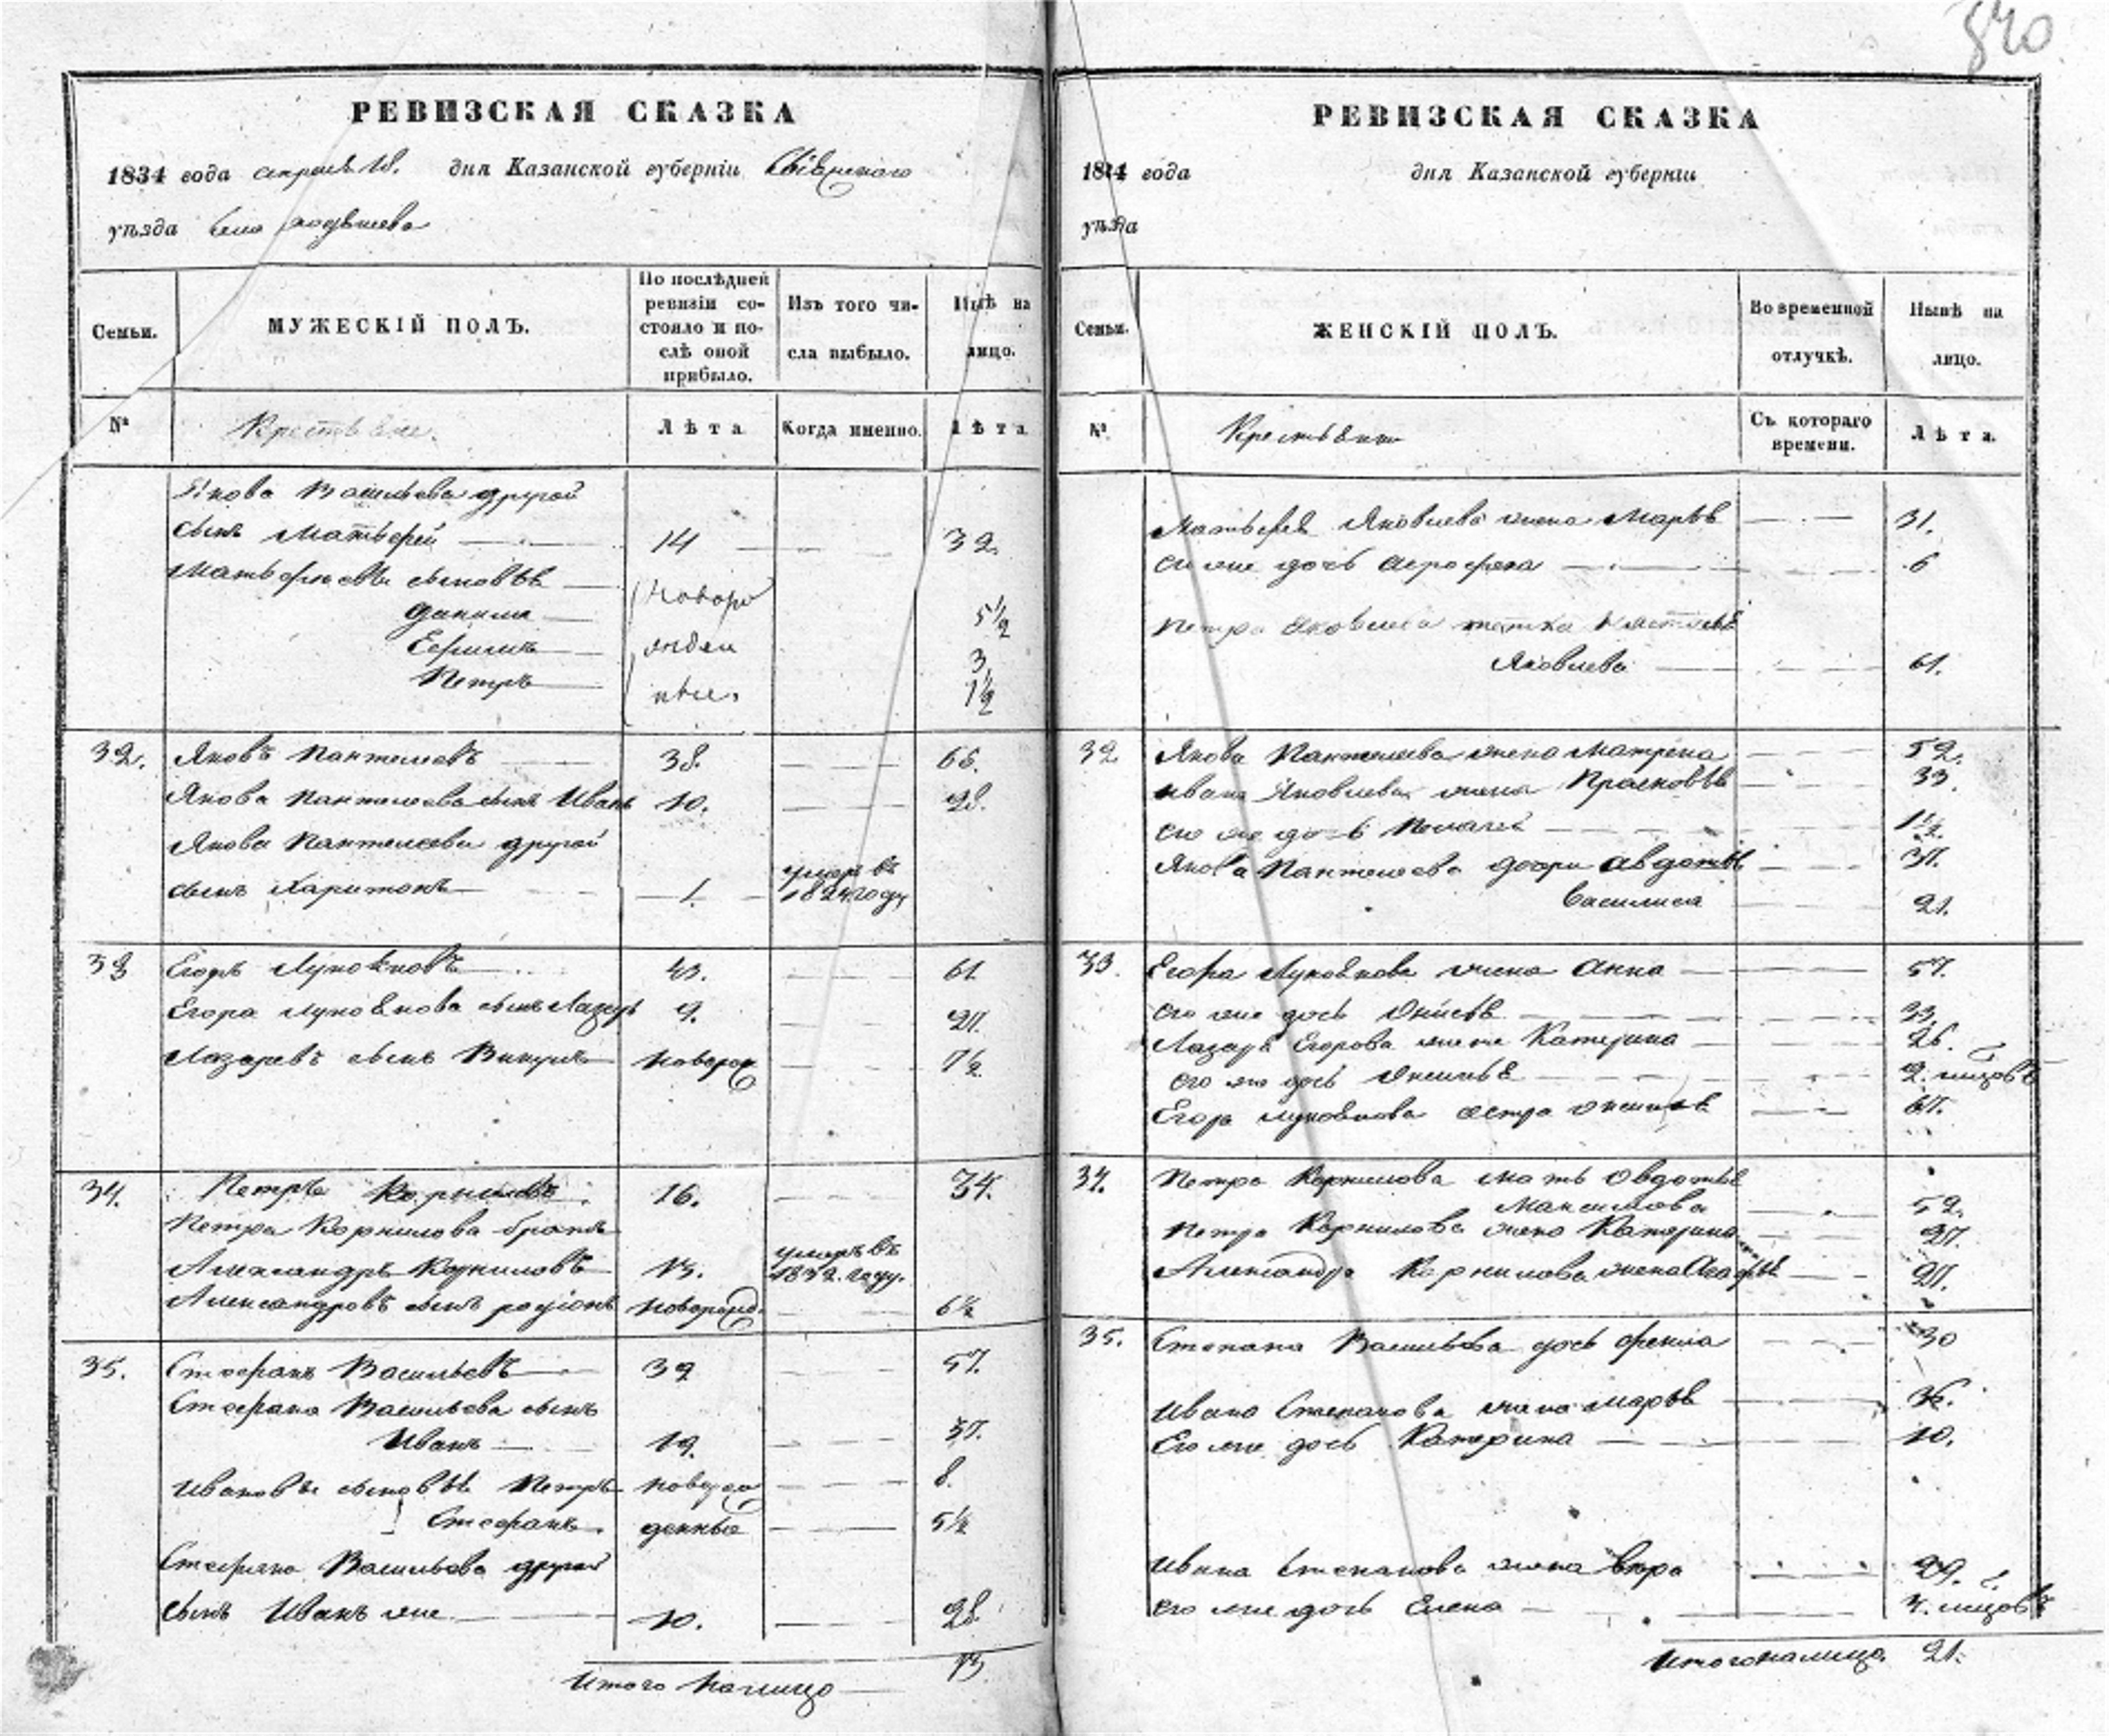 840
РЕВИЗСКАЯ СКАЗКА
1834 года апреля 18. дня Казанской губернiи
уѣзда села
Семьи.
МУЖЕСКIЙ ПОЛЪ.
По послѣдней ревизiи состояло и послѣ оной прибыло.
Изъ того числа выбыло.
Нынѣ на лицо.
№
Крестьяне.
Лѣта
Когда именно.
Лѣта
Якова Васильева другой
сынъ Матвѣй 14 32.
сыновья новоро
Данила 5½
Ефимъ жден 3
Петръ ные. 1½
32. Яковъ Пантелеевъ 38. 66.
Якова Пантелеева сынъ Иванъ 10. 28.
Якова Пантелеева другой
сынъ Харитонъ 1. умеръ въ году
33 Егоръ Лукояновъ 43. 61.
Егора Лукоянова сынъ Лазарь 9. 27.
Лазаревъ сынъ новорож 7½
34. Петръ Корниловъ. 16. 34.
Петра Корнилова братъ
Александръ Корниловъ 13. умеръ въ 1832. году.
Александровъ сынъ новорожд. 6½
35. Стефанъ Васильевъ 39 57.
Стефана Васильева сынъ
Иванъ 19. 37.
Ивановы сыновья Петръ новорож 8.
Стефанъ. денные 5½
Стефана Васильева другой
сынъ Иванъ же 10. 28.
Итого налицо 13
РЕВИЗСКАЯ СКАЗКА
1834 года дня Казанской губернiи
уѣзда
Семьи.
ЖЕНСКIЙ ПОЛЪ.
Во временной отлучкѣ.
Нынѣ на лицо.
№.
Съ котораго времени.
Лѣта.
Яковлева жена Марья 31.
его же дочь 6
Петра Яковлева тетка
Яковлева 61.
32. Якова Пантелеева жена Матрена 52.
Ивана Яковлева жена Прасковья 33.
его же дочь Пелагея 1½
Якова Пантелеева дочери Авдотья 37.
Василиса 21.
33. Егора Лукоянова жена Анна 57.
его же дочь 33
Лазаря Егорова жена Катерина 26.
его же дочь Аксинья
Егора Лукоянова сестра 67.
34. Петра Корнилова мать Овдотья
Максимова 52.
Петра Корнилова жена Катерина 37.
Александра Корнилова жена Агафья 27.
35. Степана Васильева дочь 30
Ивана Степанова жена Марья 36.
Его же дочь Катерина 10.
Ивана Степанова жена Вера 29.
его же дочь Елена
Итого налицо 21.